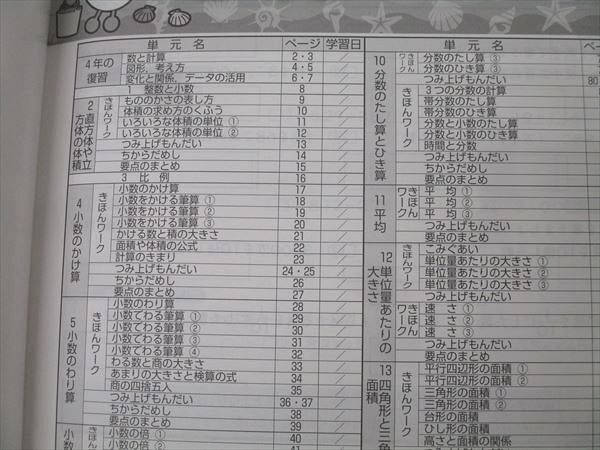 単元名 ページ 学習日
4年の復習
数と計算 2・3 /
図形，考え方 4・5 /
変化と関係，データの活用 6・7 /
1 整数と小数 8 /
2 直方体や立方体の体積
きほんワーク
もののかさの表し方 9 /
体積の求め方のくふう 10 /
いろいろな体積の単位 ① 11 /
いろいろな体積の単位 ② 12 /
つみ上げもんだい 13 /
ちからだめし 14 /
要点のまとめ 15 /
3 比例 16 /
4 小数のかけ算
きほんワーク
小数のかけ算 17 /
小数をかける筆算 ① 18 /
小数をかける筆算 ② 19 /
小数をかける筆算 ③ 20 /
かける数と積の大きさ 21 /
面積や体積の公式 22 /
計算のきまり 23 /
つみ上げもんだい 24・25 /
ちからだめし 26 /
要点のまとめ 27 /
5 小数のわり算
きほんワーク
小数のわり算 28 /
小数でわる筆算 ① 29 /
小数でわる筆算 ② 30 /
小数でわる筆算 ③ 31 /
小数でわる筆算 ④ 32 /
わる数と商の大きさ 33 /
あまりの大きさと検算の式 34 /
商の四捨五入 35 /
つみ上げもんだい 36・37 /
ちからだめし 38 /
要点のまとめ 39 /
小数
きほん
小数の倍 ① 40 /
小数の倍 ② 41 /
単元名 ページ
10 分数のたし算とひき算
きほんワーク
分数のたし算 ③
分数のひき算 ③
つみ上げもんだい 80
きほんワーク
3つの分数の計算
帯分数のたし算
帯分数のひき算
分数と小数のたし算
分数と小数のひき算
時間と分数
つみ上げもんだい
ちからだめし
要点のまとめ
11 平均
きほんワーク
平均 ①
平均 ②
平均 ③
つみ上げもんだい
要点のまとめ
12 単位量あたりの大きさ
きほんワーク
こみぐあい
単位量あたりの大きさ ①
単位量あたりの大きさ ②
単位量あたりの大きさ ③
つみ上げもんだい
きほんワーク
速さ ①
速さ ②
速さ ③
つみ上げもんだい
要点のまとめ
13 四角形と三角
面積
きほんワーク
平行四辺形の面積 ①
平行四辺形の面積 ②
三角形の面積 ①
三角形の面積 ②
台形の面積
ひし形の面積
高さと面積の関係
つみ上げもんだい